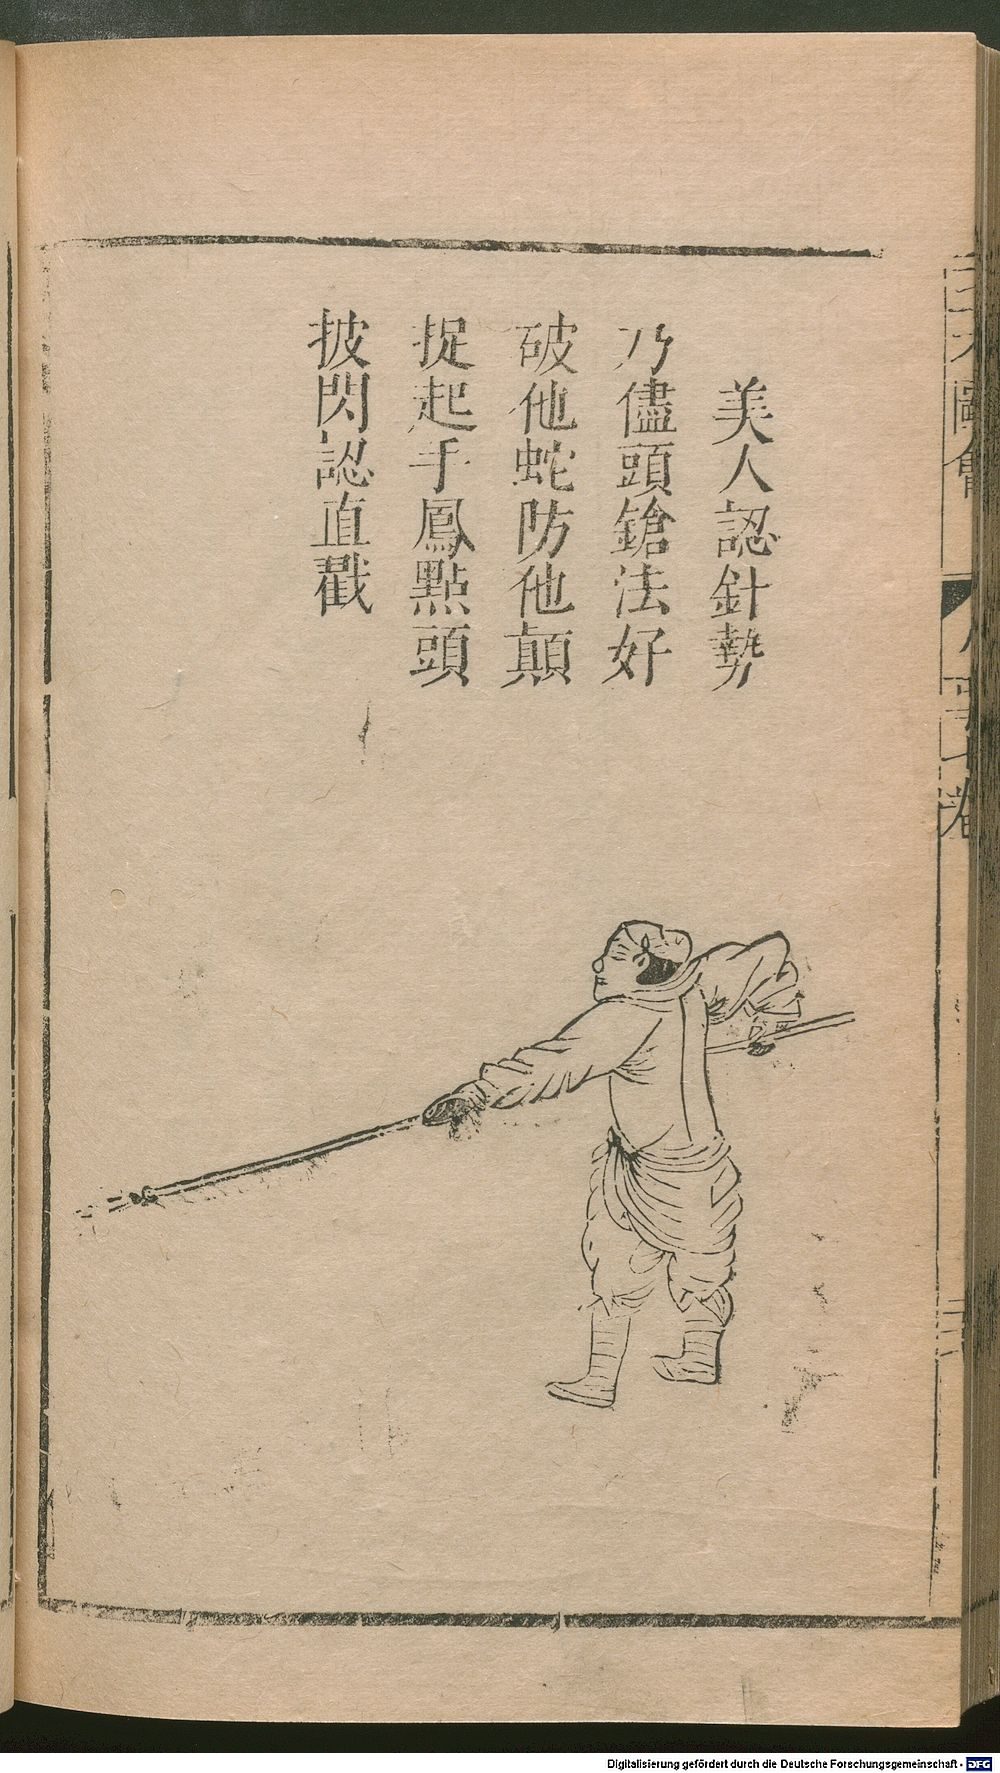 美人認針勢
乃儘頭鎗法好
破他蛇防他顛
捉起手鳳點頭
披閃認直戳
Digitalisierung gefördert durch die Deutsche Forschungsgemeinschaft - DFG